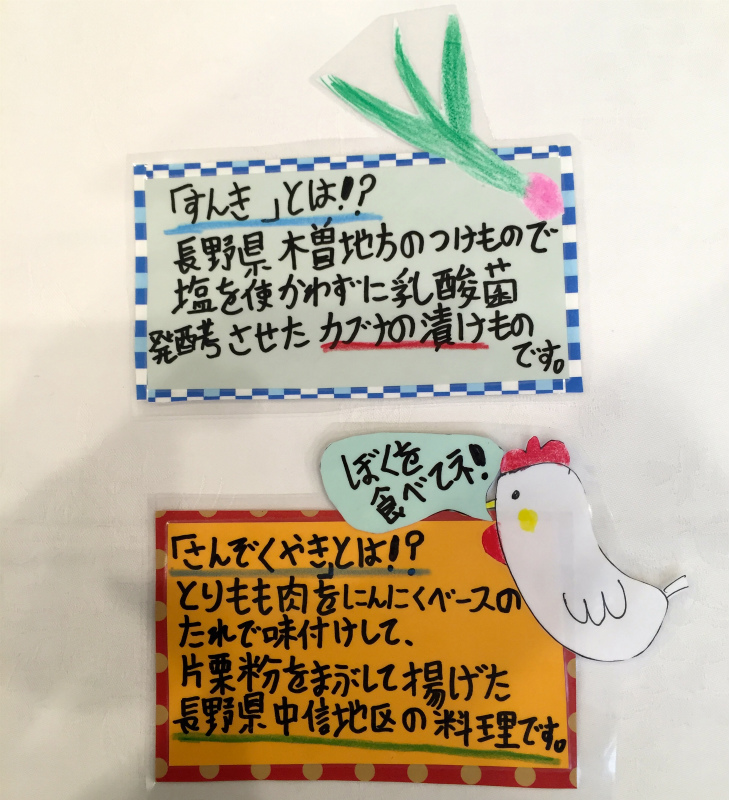 「すんき」とは!?
長野県木曽地方のつけもので
塩を使かわずに乳酸菌
発酵させたカブナの漬けもの
です。
ぼくを
食べてネ!
「さんぞくやき」とは!?
とりもも肉をにんにくベースの
たれで味付けして、
片栗粉をまぶして揚げた
長野県中信地区の料理です。